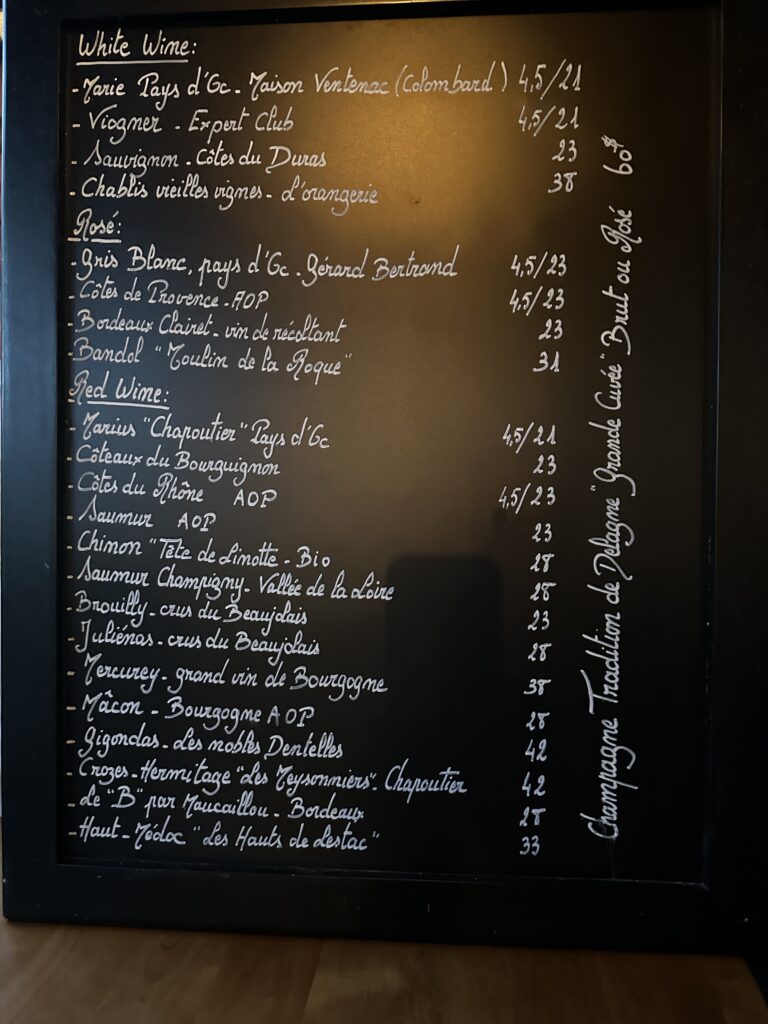 White Wine:
- Marie Pays d'Oc - Maison Ventenac (Colombard) 4,5/21
- Viogner - Expert Club 4,5/21
- Sauvignon - Côtes du Duras 23
- Chablis vieilles vignes - L'orangerie 38
Rosé:
- Gris Blanc, pays d'Oc - Gérard Bertrand 4,5/23
- Côtes de Provence - AOP 4,5/23
- Bordeaux Clairet - vin de récoltant 23
- Bandol "Moulin de la Roque" 31
Red Wine:
- Marius "Chapoutier" Pays d'Oc 4,5/21
- Côteaux du Bourguignon 23
- Côtes du Rhône AOP 4,5/23
- Saumur AOP 23
- Chinon "Tête de Linotte - Bio 28
- Saumur Champigny - Vallée de la Loire 28
- Brouilly - crus du Beaujolais 23
- Juliénas - crus du Beaujolais 28
- Mercurey - grand vin de Bourgogne 38
- Mâcon - Bourgogne AOP 28
- Gigondas - Les nobles Dentelles 42
- Crozes-Hermitage "Les Meysonniers" - Chapoutier 42
- Le "B" par Maucaillou - Bordeaux 28
- Haut-Médoc "Les Hauts de Lestac" 33
Champagne Tradition de Delagne "Grande Cuvée" Brut ou Rosé 60$